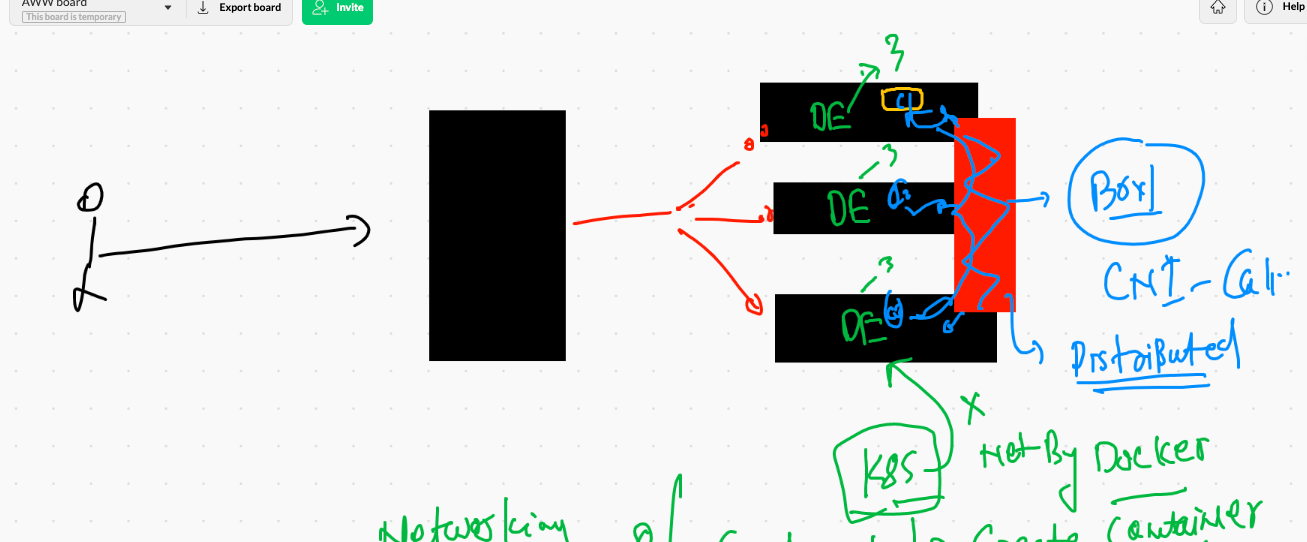 AWW board
This board is temporary
Export board
Invite
Help
3
DE
C1
3
DE
C2
3
DE
C3
Box1
CNI - Cali..
Distributed
X
K8S
Net By Docker
Networking of
Create Container